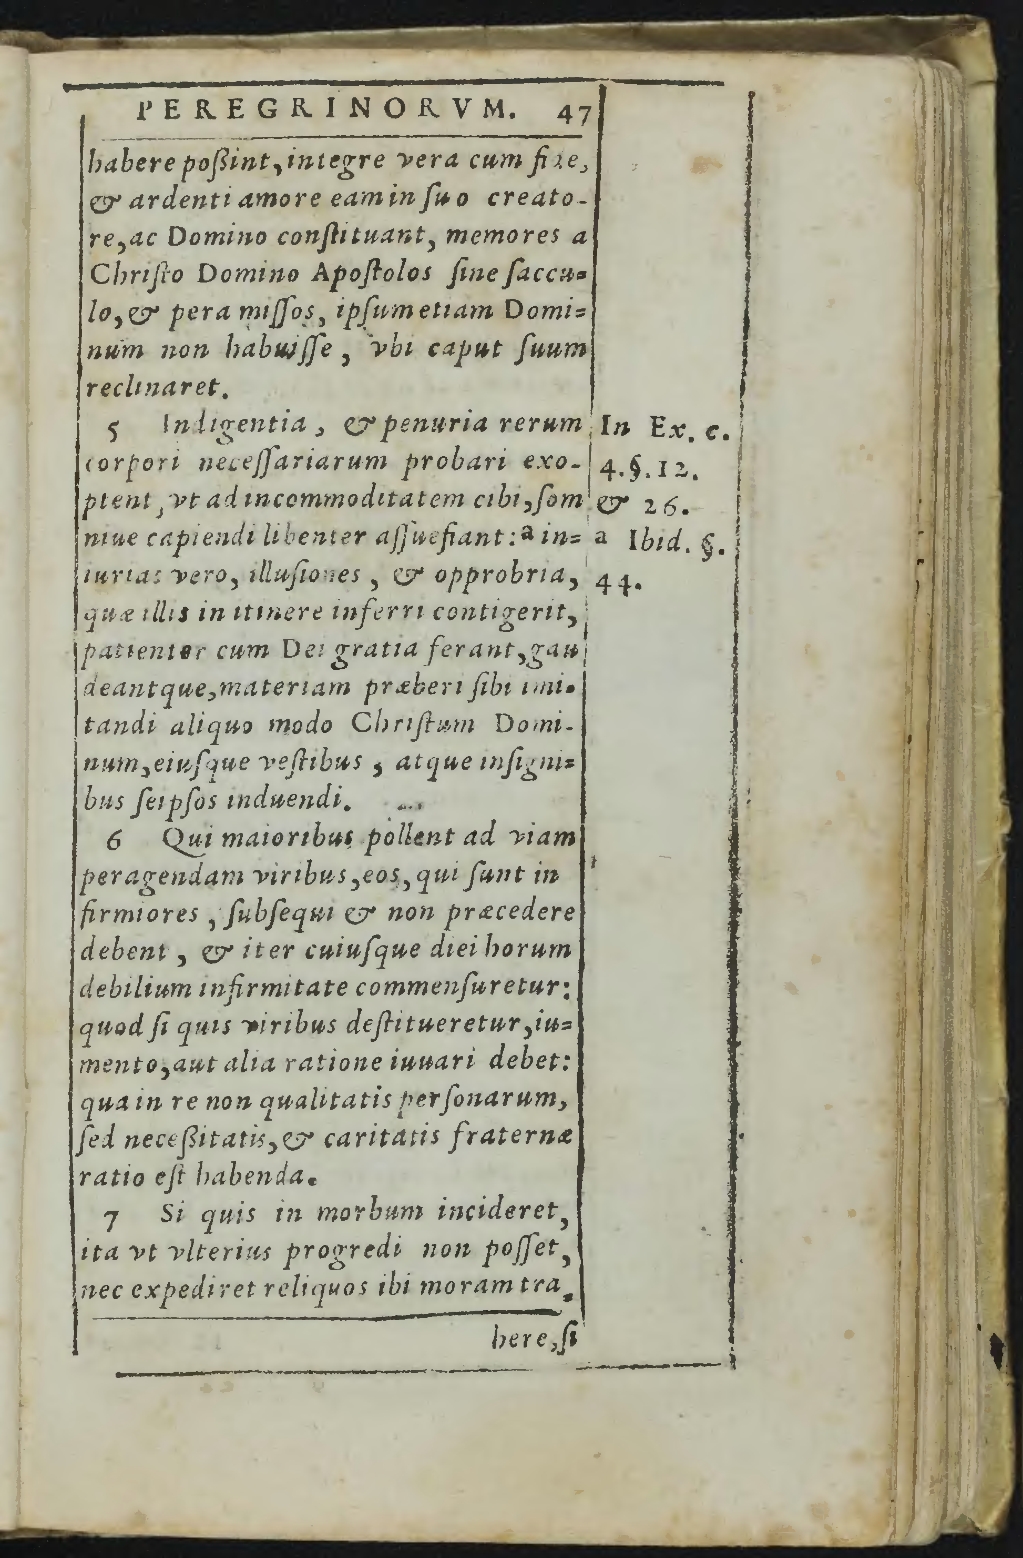 PEREGRINORVM. 47
habere poßint, integre vera cum fide,
& ardenti amore eam in ſuo creato-
re, ac Domino conſtituant, memores a
Chriſto Domino Apoſtolos ſine ſaccu-
lo, & pera miſſos, ipſum etiam Domi-
num non habuiſſe, vbi caput ſuum
reclinaret.
5 Indigentia, & penuria rerum
corpori neceſſariarum probari exo-
ptent, vt ad incommoditatem cibi, ſom
niue capiendi libenter aſſuefiant: a in-
iurias vero, illuſiones, & opprobria,
quæ illis in itinere inferri contigerit,
patienter cum Dei gratia ferant, gau
deantque, materiam præberi ſibi imi-
tandi aliquo modo Chriſtum Domi-
num, eiuſque veſtibus, atque inſigni-
bus ſeipſos induendi.
6 Qui maioribus pollent ad viam
peragendam viribus, eos, qui ſunt in
firmiores, ſubſequi & non præcedere
debent, & iter cuiuſque diei horum
debilium infirmitate commenſuretur:
quod ſi quis viribus deſtitueretur, iu-
mento, aut alia ratione iuuari debet:
qua in re non qualitatis perſonarum,
ſed neceßitatis, & caritatis fraternæ
ratio eſt habenda.
7 Si quis in morbum incideret,
ita vt vlterius progredi non poſſet,
nec expediret reliquos ibi moram tra-
here, ſi
In Ex. c.
4. §. 12.
& 26.
a Ibid. §.
44.